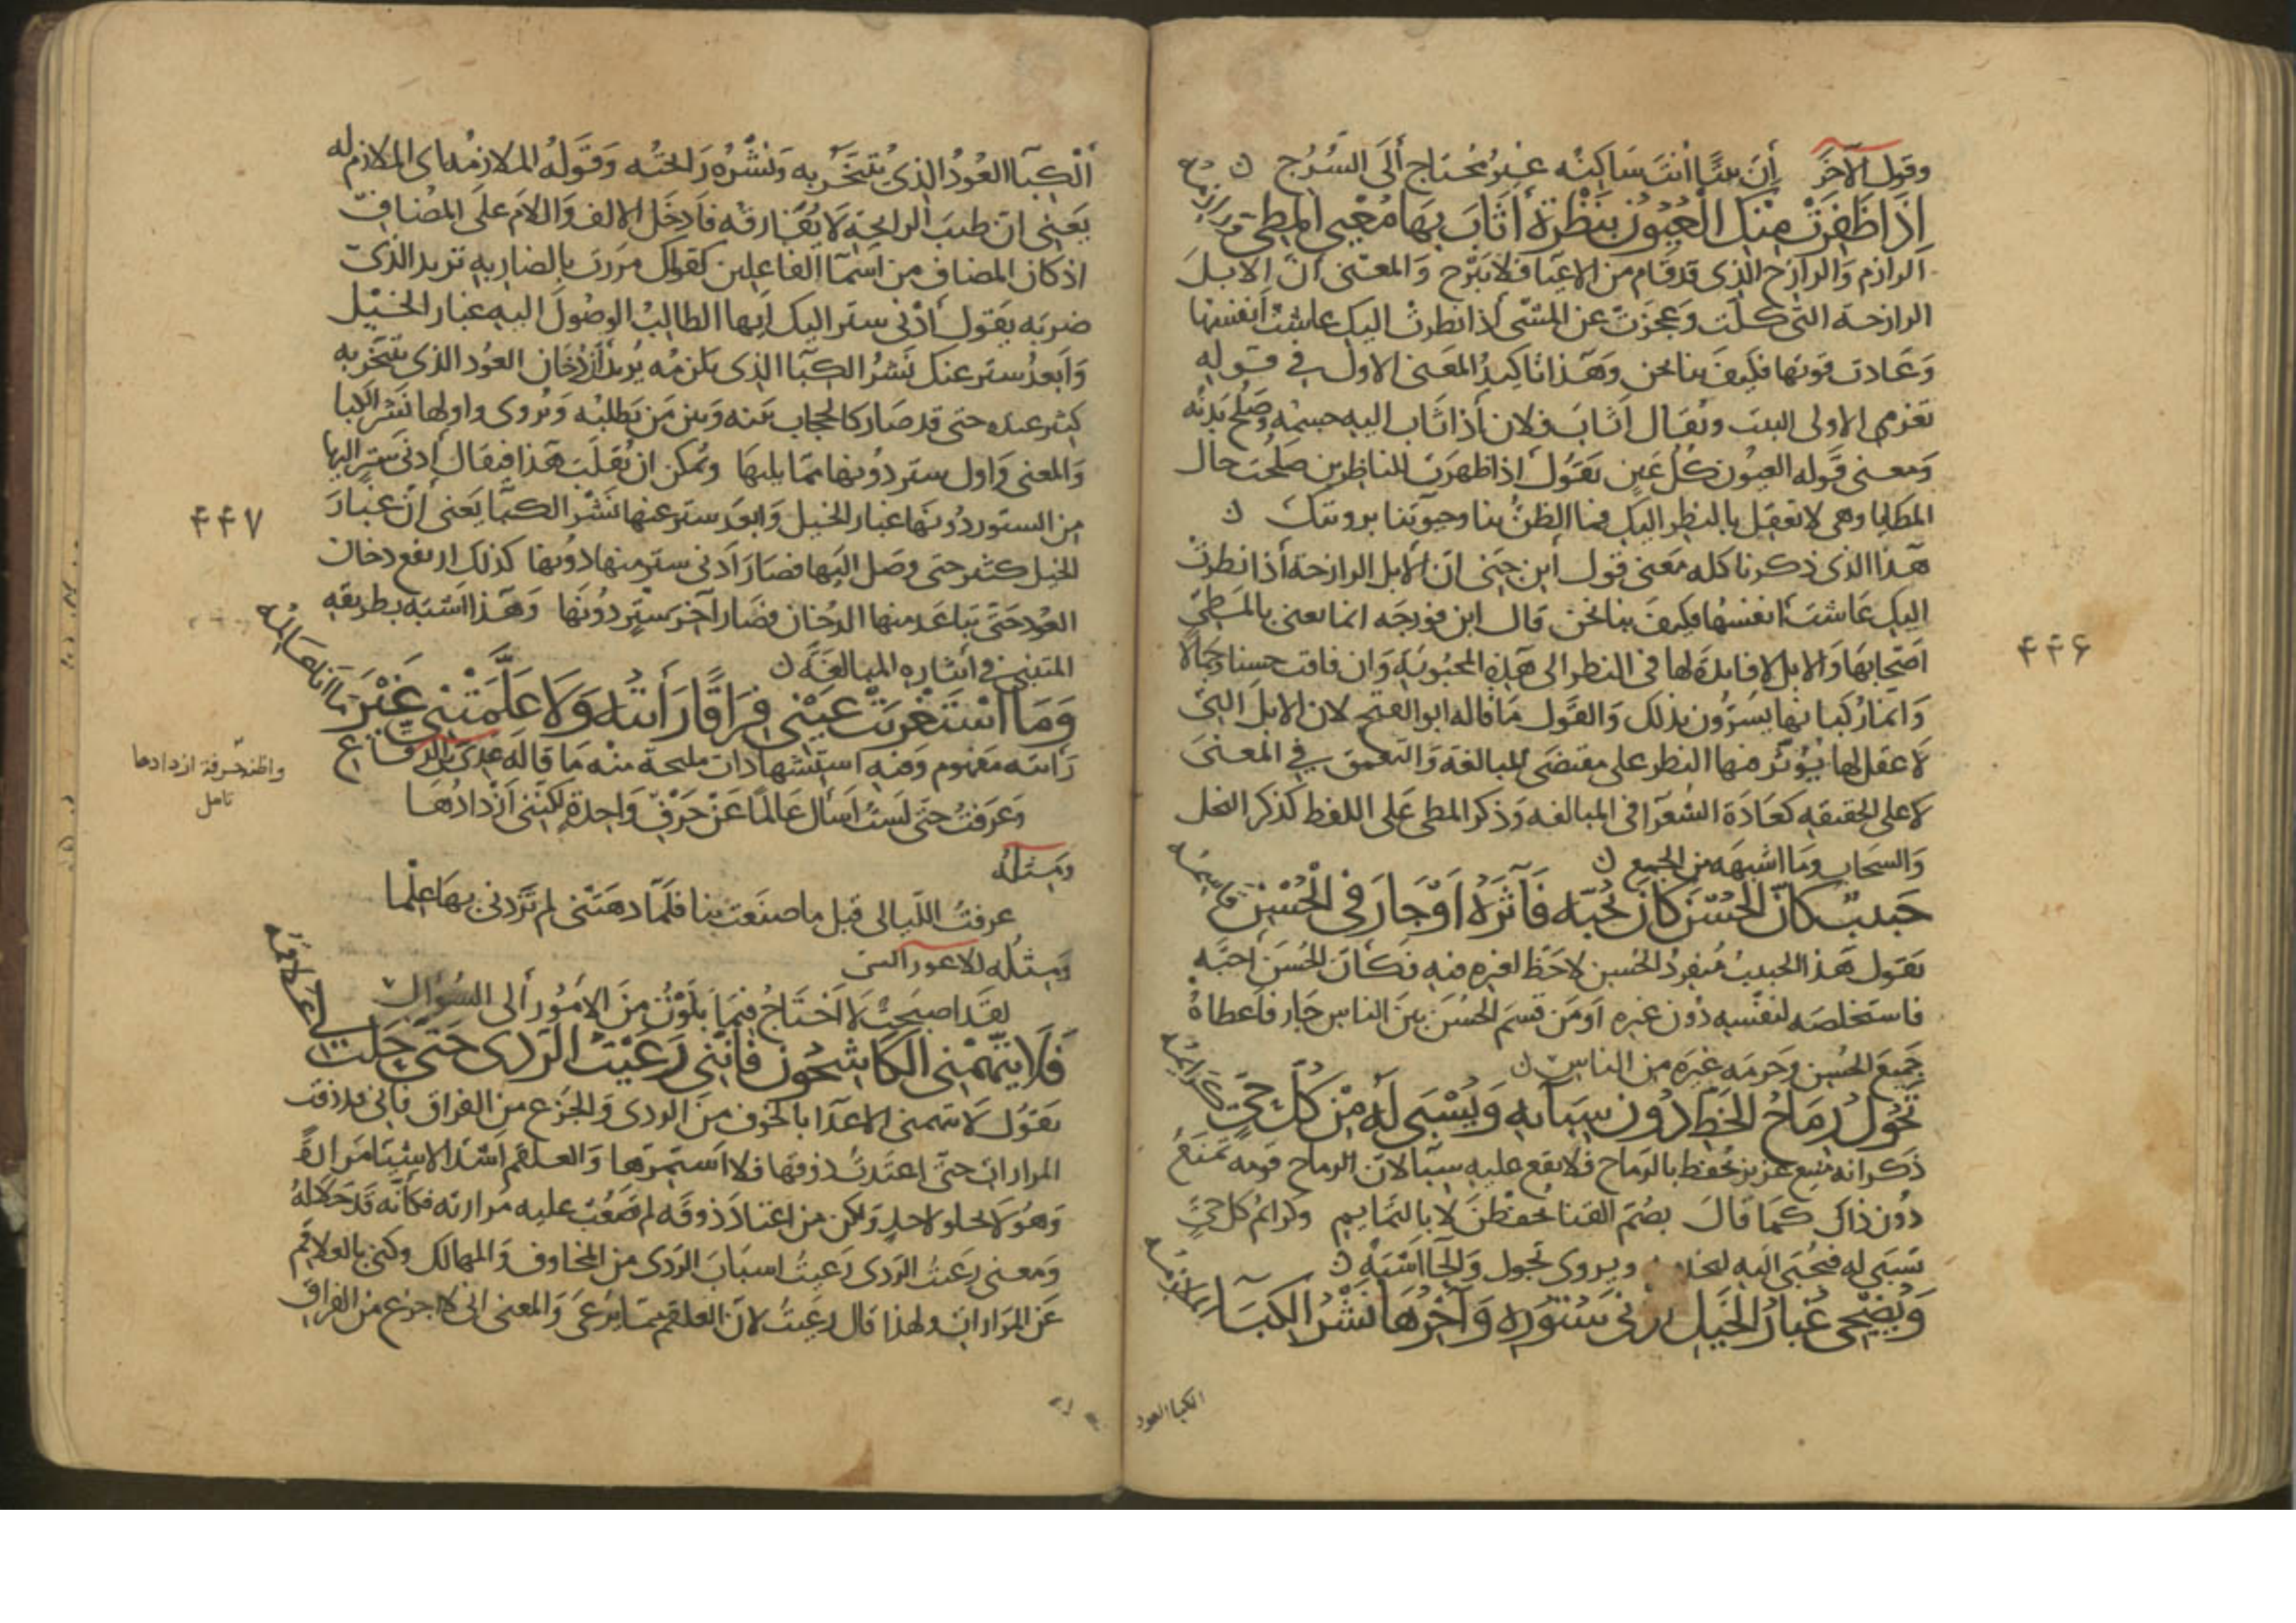 وقول الآخر إن بيتا أنت ساكنه غير محتاج ألى السرج
اذا ظفرت منك العيون بنظرة أثاب بها معيي المطي ورازمه
الرازم والرازح الذي قد قام من الاعيا فلا يبرح والمعنى ان الابل
الرازحة التي كلت وعجزت عن المشي أذا نظرت اليك عاشت أنفسها
وعادت قوتها فكيف بنا نحن وهذا تاكيد المعنى الاول في قوله
تغرم الاولى البيت ويقال اثاب فلان أذا ثاب اليه جسمه وصلح بدنه
ومعنى قوله العيون كل عين يقول اذا ظهرت للناظرين صلحت حال
المطايا وهي لا تعقل بالنظر اليك فما الظن بنا وحيوتنا برويتك
هذا الذي ذكرنا كله معنى قول ابن جني ان الابل الرازحة أذا نظرت
اليك عاشت أنفسها فكيف بنا نحن قال ابن فورجه انما يعني بالمطي
اصحابها والابل لا فائدة لها في النظر الى هذه المحبوبة وان فاقت حسنا وجمالا
وانما ركبانها يسرون بذلك والقول ما قاله ابو الفتح لان الابل التي
لا عقل لها يؤثر فيها النظر على مقتضى المبالغة والتعمق في المعنى
لا على الحقيقه كعادة الشعرا في المبالغه وذكر المطي على اللفظ كذكر النخل
والسحاب وما اشبهه من الجمع
حبيب كان الحسن كان يحبه فآثره او جار في الحسن قاسمه
يقول هذا الحبيب منفرد الحسن لا حظ لغيره فيه فكأن الحسن أحبه
فاستخلصه لنفسه دون غيره او من قسم الحسن بين الناس جار فاعطاه
جميع الحسن وحرمه غيره من الناس
تحول رماح الخط دون سبآيه ويسبى له من كل حي كرايمه
ذكر انه منيع عزيز يحفظ بالرماح فلا يقع عليه سبآ لان الرماح قومه تمنع
دون ذاك كما قال بصم القنا يحفظن لا بالتمايم وكرائم كل حي
تسبى له فتجبى اليه ويروى تجول والحآ اشبه
ويضحي غبار الخيل ادنى ستوره وآخرها نشر الكبآ الملازمه
الكبا العود
۴۴۶
ألكبآ العود الذي يتبخر به ونشره رائحته وقوله الملازمه اى الملازم له
يعني ان طيب الرائحة لا يفارقه فادخل الالف واللام على المضاف
اذ كان المضاف من اسمآ الفاعلين كقولك مررت بالضاربه تريد الذي
ضربه يقول أدنى ستر اليك أيها الطالب الوصول اليه غبار الخيل
وأبعد ستر عنك نشر الكبآ الذي يلزمه يريد أن دخان العود الذي يتبخر به
كثر عنده حتى قد صار كالحجاب بينه وبين من يطلبه ويروى واولها نشر الكبا
والمعنى واول ستر دونها مما يليها ويمكن ان يقلب هذا فيقال أدنى ستر اليها
من الستور دونها غبار الخيل وابعد ستر عنها نشر الكبآ يعني أن غبار
الخيل كثر حتى وصل اليها فصار أدنى ستر منها دونها كذلك ارتفع دخان
العود حتى تباعد منها الدخان فصار آخر ستر دونها وهذا اشبه بطريقه
المتنبي في ايثاره المبالغة
وما استغربت عيني فراقا رأيته ولا علمتني غير ما انا عالمه
رايته مفهوم وفيه استشهادات مليحة منه ما قاله عدى بن الرقاع
وعرفت حتى لست أسأل عالما عن حرف واحدة لكيني أزدادها
واظنه حرفة ازدادها
تامل
ومثله
عرفت الليالي قبل ما صنعت بنا فلما دهتني لم تزدني بها علما
ومثله للاعور الشنى
لقد اصبحت لا أحتاج فيما بلوت من الامور ألى السؤال
فلا يتهمني الكاشحون فانني رعيت الردى حتى حلت لي علاقمه
يقول لا يتهمني الاعدآ بالخوف من الردى والجزع من الفراق فاني قد ذقت
المرارات حتى اعتدت ذوقها فلا استمرها والعلقم اشد الاشيا مرارة
وهو لا يحلو لاحد ولكن من اعتاد ذوقه لم تصعب عليه مرارته فكأنه قد حلا له
ومعنى رعيت الردى رعيت اسباب الردى من المخاوف والمهالك وكنى بالعلاقم
عن المرارات ولهذا قال رعيت لان العلقم مما يرعى والمعنى اني لا اجزع من الفراق
۴۴۷